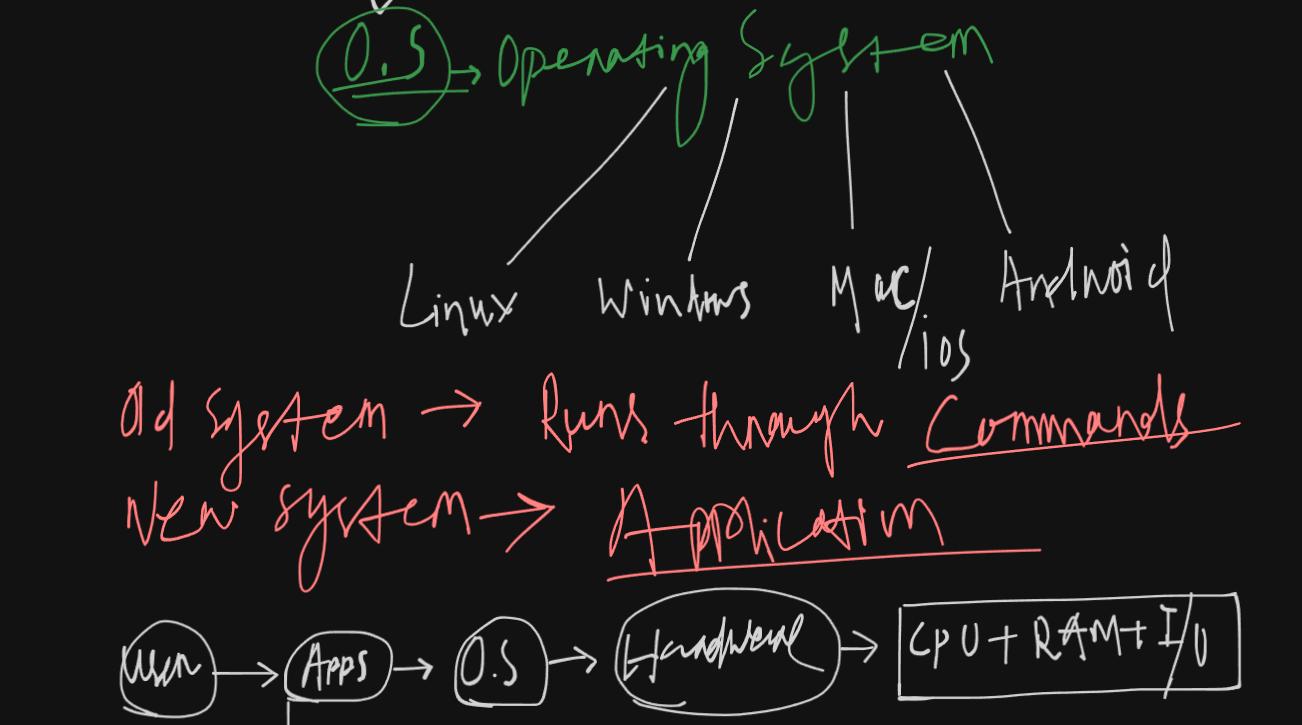 O.S → Operating System
Linux Windows Mac/ios Android
Old system → Runs through Commands
New system → Application
User → Apps → O.S → Hardware → CPU + RAM + I/O